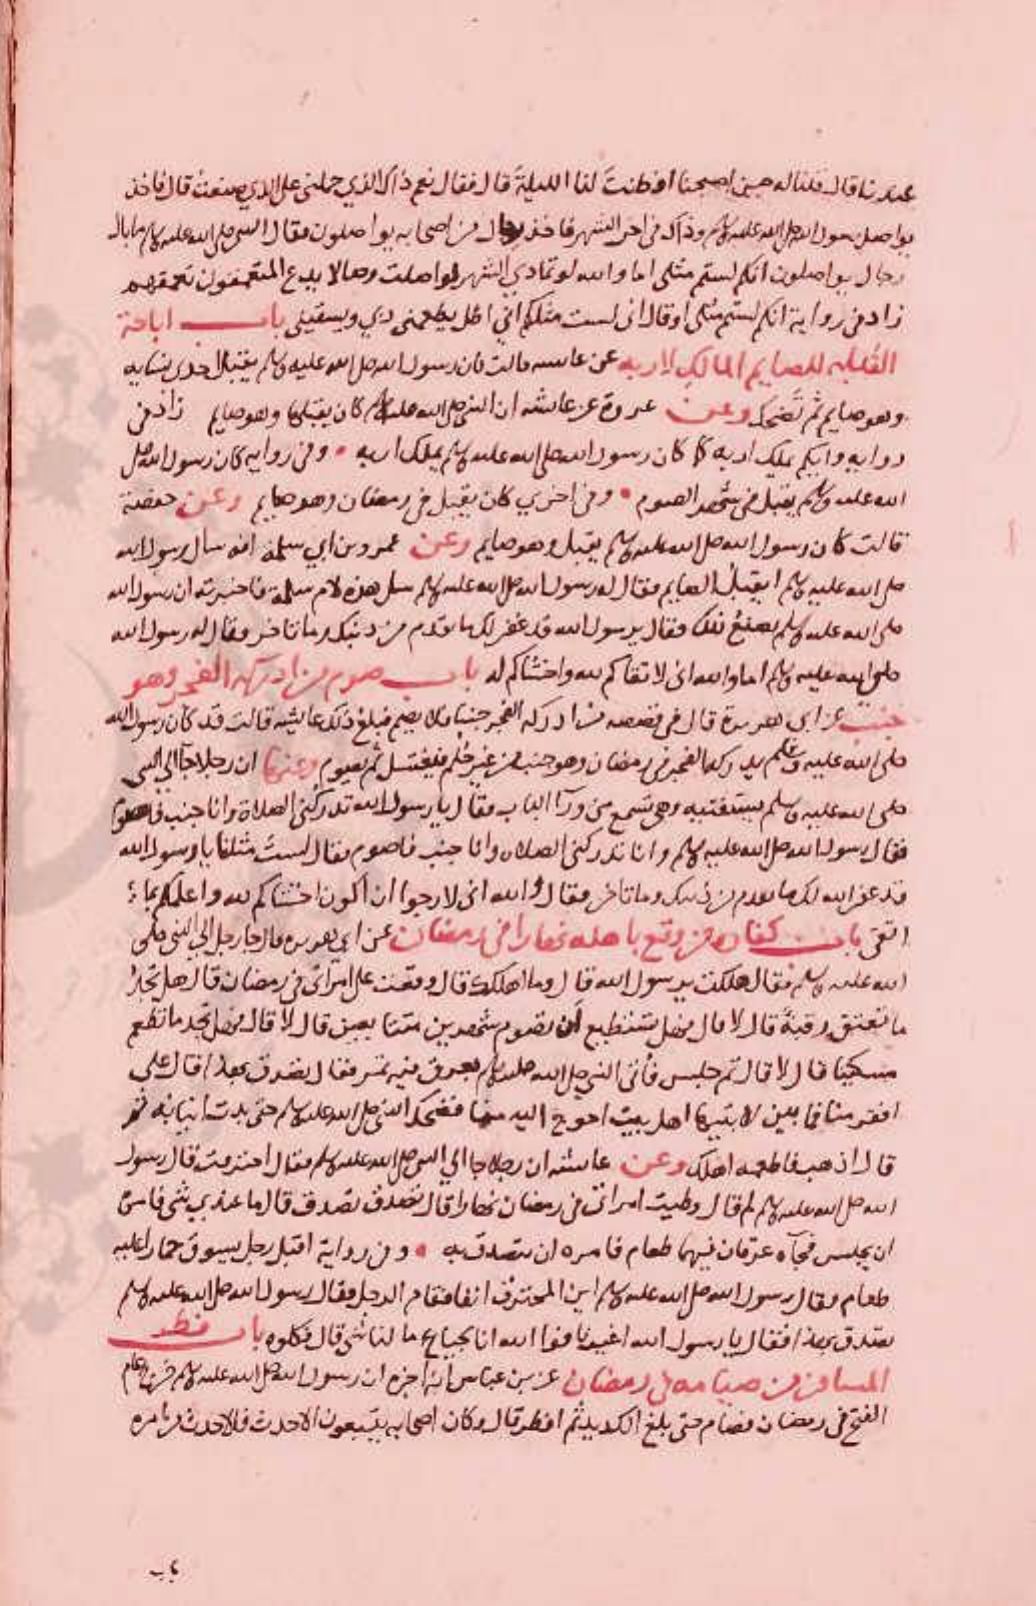 عندنا قال قلنا له حين اصبحنا افطنت لنا الليلة قال فقال نعم ذاك الذي حملني على الذي صنعت قال فاخذ
يواصل رسول الله صلى الله عليه وسلم وذاك في اخر الشهر فاخذ رجال من اصحابه يواصلون فقال النبي صلى الله عليه وسلم ما بال
رجال يواصلون انكم لستم مثلي اما والله لو تمادي الشهر لواصلت وصالا يدع المتعمقون تعمقهم
زاد في رواية انكم لستم مثلي او قال اني لست مثلكم اني اظل يطعمني ربي ويسقيني باب اباحة
القبلة للصايم المالك لاربه عن عائشه قالت كان رسول الله صلى الله عليه وسلم يقبل احدى نسايه
وهو صايم ثم تضحك وعن عروة عن عائشه ان النبي صلى الله عليه وسلم كان يقبلها وهو صايم زاد في
روايه وايكم يملك اربه كما كان رسول الله صلى الله عليه وسلم يملك اربه وفي روايه كان رسول الله صلى
الله عليه وسلم يقبل في شهر الصوم وفي اخري كان يقبل في رمضان وهو صايم وعن حفصة
قالت كان رسول الله صلى الله عليه وسلم يقبل وهو صايم وعن عمرو بن ابي سلمة انه سال رسول الله
صلى الله عليه وسلم ايقبل الصايم فقال له رسول الله صلى الله عليه وسلم سل هذه لام سلمة فاخبرته ان رسول الله
صلى الله عليه وسلم يصنع ذلك فقال يرسول الله قد غفر لك ما تقدم من ذنبك وما تاخر فقال له رسول الله
صلى الله عليه وسلم اما والله اني لاتقاكم لله واخشاكم له باب صوم من ادركه الفجر وهو
جنب عن ابي هريرة قال في قصصه من ادركه الفجر جنبا فلا يصم فبلغ ذلك عايشه قالت قد كان رسول الله
صلى الله عليه وسلم يدركه الفجر في رمضان وهو جنب من غير حلم فيغتسل ثم يصوم وعنها ان رجلا جآ الي النبي
صلى الله عليه وسلم يستفتيه وهي تسمع من ورآ الباب فقال يا رسول الله تدركني الصلاة وانا جنب فاصوم
فقال رسول الله صلى الله عليه وسلم وانا تدركني الصلاه وانا جنب فاصوم فقال لست مثلنا يا رسول الله
قد غفر الله لك ما تقدم من ذنبك وما تاخر فقال والله اني لارجوا ان اكون اخشاكم لله واعلمكم بما
اتقى باب كفاره من وقع باهله نهارا في رمضان عن ابي هريره قال جا رجل الي النبي صلى
الله عليه وسلم فقال هلكت يرسول الله قال وما اهلكك قال وقعت على امراتي في رمضان قال هل تجد
ما تعتق رقبة قال لا قال فهل تستطيع ان تصوم شهرين متتابعين قال لا قال فهل تجد ما تطعم
مسكينا قال لا قال ثم جلس فاتي النبي صلى الله عليه وسلم بعرق فيه تمر فقال تصدق بهذا قال على
افقر منا فما بين لابتيها اهل بيت احوج اليه منا فضحك النبي صلى الله عليه وسلم حتى بدت انيابه ثم
قال اذهب فاطعمه اهلك وعن عائشه ان رجلا جا الي النبي صلى الله عليه وسلم فقال احترقت قال رسول
الله صلى الله عليه وسلم لم قال وطيت امراتي في رمضان نهارا قال تصدق تصدق قال ما عندي شي فامره
ان يجلس فجآه عرقان فيهما طعام فامره ان يتصدق به وفي رواية اقبل رجل يسوق حمارا عليه
طعام فقال رسول الله صلى الله عليه وسلم اين المحترف انفا فقام الرجل فقال رسول الله صلى الله عليه وسلم
تصدق بهذا فقال يا رسول الله اغيرنا فوا الله انا لجياع ما لنا شي قال فكلوه باب فطر
المسافر من صيامه في رمضان عن بن عباس انه اخبره ان رسول الله صلى الله عليه وسلم خرج عام
الفتح في رمضان فصام حتى بلغ الكديد ثم افطر قال وكان اصحابه يتبعون الاحدث فالاحدث من امره